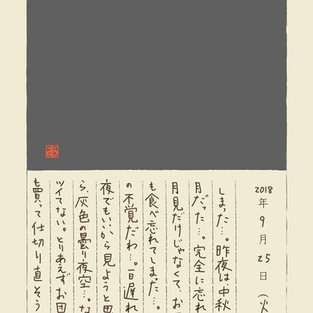 2018年9月25日（火
しまった…。昨夜は中秋
月だった…。完全に忘れ
月見だけじゃなくて、お
も食べ忘れてしまった…。
の不覚だわ…。一日遅れ
夜でもいいから見ようと思
ら、灰色の曇り夜空…。な
ツイてない。とりあえずお団
も買って仕切り直そう